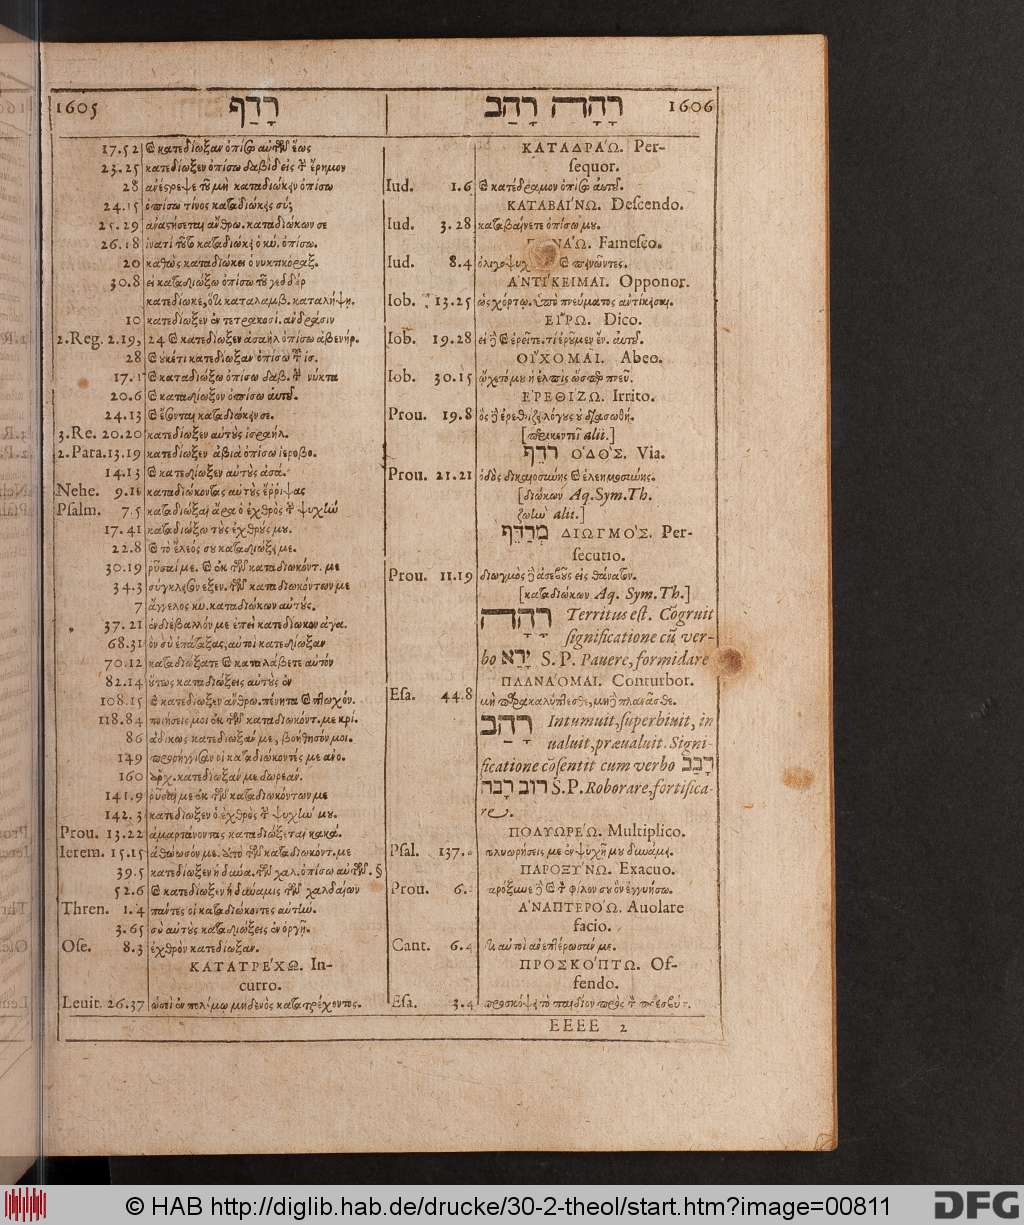 1605 רָדַף
17.52 καὶ κατεδίωξαν ὀπίσω αὐτῶν ἕως
23.25 κατεδίωξεν ὀπίσω δαβὶδ εἰς τὴν ἔρημον
28 ἀνέστρεψε τοῦ μὴ καταδιώκειν ὀπίσω
24.15 ὀπίσω τίνος καταδιώκεις σύ;
25.29 ἀναστήσεται ἄνθρω. καταδιώκων σε
26.18 ἱνατί τοῦτο καταδιώκει ὁ κύ. ὀπίσω.
20 καθὼς καταδιώκει ὁ νυκτικόραξ.
30.8 εἰ καταδιώξω ὀπίσω τοῦ γεδδούρ
καταδίωκε, ὅτι καταλαμβ. καταλήψῃ.
10 κατεδίωξεν ἐν τετρακοσί. ἀνδράσιν
2.Reg. 2.19, 24 καὶ κατεδίωξεν ἀσαὴλ ὀπίσω ἀβενήρ.
28 καὶ οὐκέτι κατεδίωξαν ὀπίσω τοῦ ἰσ.
17.1 καὶ καταδιώξω ὀπίσω δαβ. τὴν νύκτα
20.6 καὶ καταδίωξον ὀπίσω αὐτοῦ.
24.13 καὶ ἔσονται καταδιώκειν σε.
3.Re. 20.20 κατεδίωξεν αὐτοὺς ἰσραήλ.
2.Para. 13.19 κατεδίωξεν ἀβιὰ ὀπίσω ἱεροβο.
14.13 καὶ κατεδίωξεν αὐτοὺς ἀσά.
Nehe. 9.11 καταδιώκοντας αὐτοὺς ἔρριψας
Psalm. 7.5 καταδιώξαι ἄρα ὁ ἐχθρὸς τὴν ψυχὴν
17.41 καταδιώξω τοὺς ἐχθρούς μου.
22.8 καὶ τὸ ἔλεός σου καταδιώξει με.
30.19 ῥῦσαί με. καὶ ἐκ τῶν καταδιωκόντ. με
34.3 σύγκλεισον ἐξεν. τῶν καταδιωκόντων με
7 ἄγγελος κυ. καταδιώκων αὐτούς.
37.21 ἐνδιέβαλλόν με ἐπεὶ κατεδίωκον ἀγα.
68.31 ὃν σὺ ἐπάταξας, αὐτοὶ κατεδίωξαν
70.12 καταδιώξατε καὶ καταλάβετε αὐτόν
82.14 οὕτως καταδιώξεις αὐτοὺς ἐν
108.15 καὶ κατεδίωξεν ἄνθρω. πένητα καὶ πτωχόν.
118.84 ποιήσεις μοι ἐκ τῶν καταδιωκόντ. με κρί.
86 ἀδίκως κατεδίωξάν με, βοήθησόν μοι.
149 προσήγγισαν οἱ καταδιώκοντές με ἀνο.
160 ἄρχ. κατεδίωξάν με δωρεάν.
141.9 ῥῦσαί με ἐκ τῶν καταδιωκόντων με
142.3 κατεδίωξεν ὁ ἐχθρὸς τὴν ψυχήν μου.
Prou. 13.22 ἁμαρτάνοντας καταδιώξεται κακά.
Ierem. 15.15 ἀθώωσόν με. ἀπὸ τῶν καταδιωκόντ. με
39.5 κατεδίωξεν ἡ δύνα. τῶν χαλ. ὀπίσω αὐτῶν. §
52.6 καὶ κατεδίωξεν ἡ δύναμις τῶν χαλδαίων
Thren. 1.4 πάντες οἱ καταδιώκοντες αὐτήν.
3.65 σὺ αὐτοὺς καταδιώξεις ἐν ὀργῇ.
Ose. 8.3 ἐχθρὸν κατεδίωξαν.
ΚΑΤΑΤΡΕΧΩ. In-
curro.
Leuit. 26.37 ὡσεὶ ἐν πολέμῳ μηδενὸς κατατρέχοντος.
רָהָה רָהַב 1606
ΚΑΤΑΔΡΑΩ. Per-
sequor.
Iud. 1.6 καὶ κατέδραμον ὀπίσω αὐτοῦ.
ΚΑΤΑΒΑΙΝΩ. Descendo.
Iud. 3.28 καταβαίνετε ὀπίσω μου.
ΠΕΙΝΑΩ. Famesco.
Iud. 8.4 ὀλιγοψυχ καὶ πεινῶντες.
ΑΝΤΙΚΕΙΜΑΙ. Opponor.
Iob. 13.25 ὡς χόρτῳ. ὑπὸ πνεύματος ἀντίκεισαι.
ΕΙΡΩ. Dico.
Iob. 19.28 εἰ δὲ καὶ ἐρεῖτε. τί ἐροῦμεν ἔν. αὐτοῦ.
ΟΙΧΟΜΑΙ. Abeo.
Iob. 30.15 ᾤχετό μου ἡ ἐλπὶς ὥσπερ πνεῦ.
ΕΡΕΘΙΖΩ. Irrito.
Prou. 19.8 ὃς δὲ ἐρεθίζει λόγους οὐ σωθή.
alii.]
רֹדֵף ΟΔΟΣ. Via.
Prou. 21.21 ὁδὸς δικαιοσύνης καὶ ἐλεημοσύνης.
[διώκων Aq. Sym. Th.
ζωὴν alii.]
מְרַדֵּף ΔΙΩΓΜΟΣ. Per-
secutio.
Prou. 11.19 διωγμὸς δὲ ἀσεβοῦς εἰς θάνατον.
[καταδιώκων Aq. Sym. Th.]
רָהָה Territus est. Cōgruit
significatione cū ver-
bo יָרֵא S. P. Pauere, formidare
ΠΛΑΝΑΟΜΑΙ. Conturbor.
Esa. 44.8 μὴ παρακαλύπτεσθε, μηδὲ πλανᾶσθε.
רָהַב Intumuit, superbiuit, in
ualuit, præualuit. Signi-
ficatione cōsentit cum verbo רָבַב
רוּב רָבָה S.P. Roborare, fortifica-
re.
ΠΟΛΥΩΡΕΩ. Multiplico.
Psal. 137. πολυωρήσεις με ἐν ψυχῇ μου δυνάμει.
ΠΑΡΟΞΥΝΩ. Exacuo.
Prou. 6. παρόξυνε δὲ καὶ τὸν φίλον σου ὃν ἐγγυήσω.
ΑΝΑΠΤΕΡΟΩ. Auolare
facio.
Cant. 6.4 ὅτι αὐτοὶ ἀνεπτέρωσάν με.
ΠΡΟΣΚΟΠΤΩ. Of-
fendo.
Esa. 3.4 προσκόψει τὸ παιδίον πρὸς τὸν πρεσβύτ.
EEEE 2
© HAB http://diglib.hab.de/drucke/30-2-theol/start.htm?image=00811
DFG